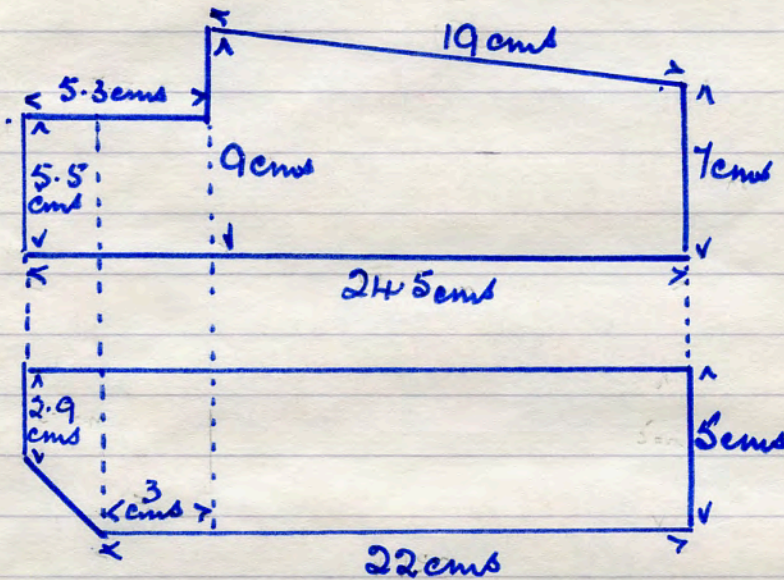 19 cms
5.3 cms
5.5
cms
9 cms
7 cms
24.5 cms
2.9
cms
5 cms
3
cms
22 cms